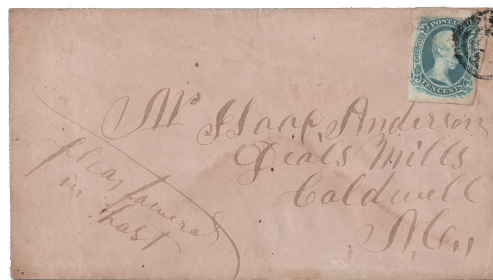 POSTAGE
TEN CENTS
Mr Isaac Anderson
Deals Mills
Caldwell
N.C.
in hast